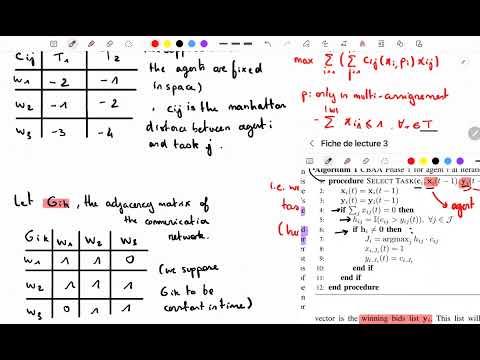 Cij T1 T2
w1 -2 -1
w2 -1 -2
w3 -3 -4
the agents are fixed
in space)
. cij is the manhattan
distance between agent i
and task j.
Let Gik, the adjacency matrix of
the communication
network.
Gik w1 w2 w3
w1 1 1 0
w2 1 1 1
w3 0 1 1
(we suppose
Gik to be
constant in time)
max Σ ( Σ cij (xi, pi) xij)
p: only in multi-assignement
Fiche de lecture 3
Algorithm 1 CBAA Phase 1 for agent i at iteration
1: procedure SELECT TASK(c
2: xi(t) = xi(t − 1)
3: yi(t) = yi(t − 1)
4: if Σj xij(t) = 0 then
5: hij = I(cij > yij(t)), ∀j ∈ J
6: if hi ≠ 0 then
7: Ji = argmaxj hij · cij
8: xi,Ji(t) = 1
9: yi,Ji(t) = ci,Ji
10: end if
11: end if
12: end procedure
agent
vector is the winning bids list yi. This list will